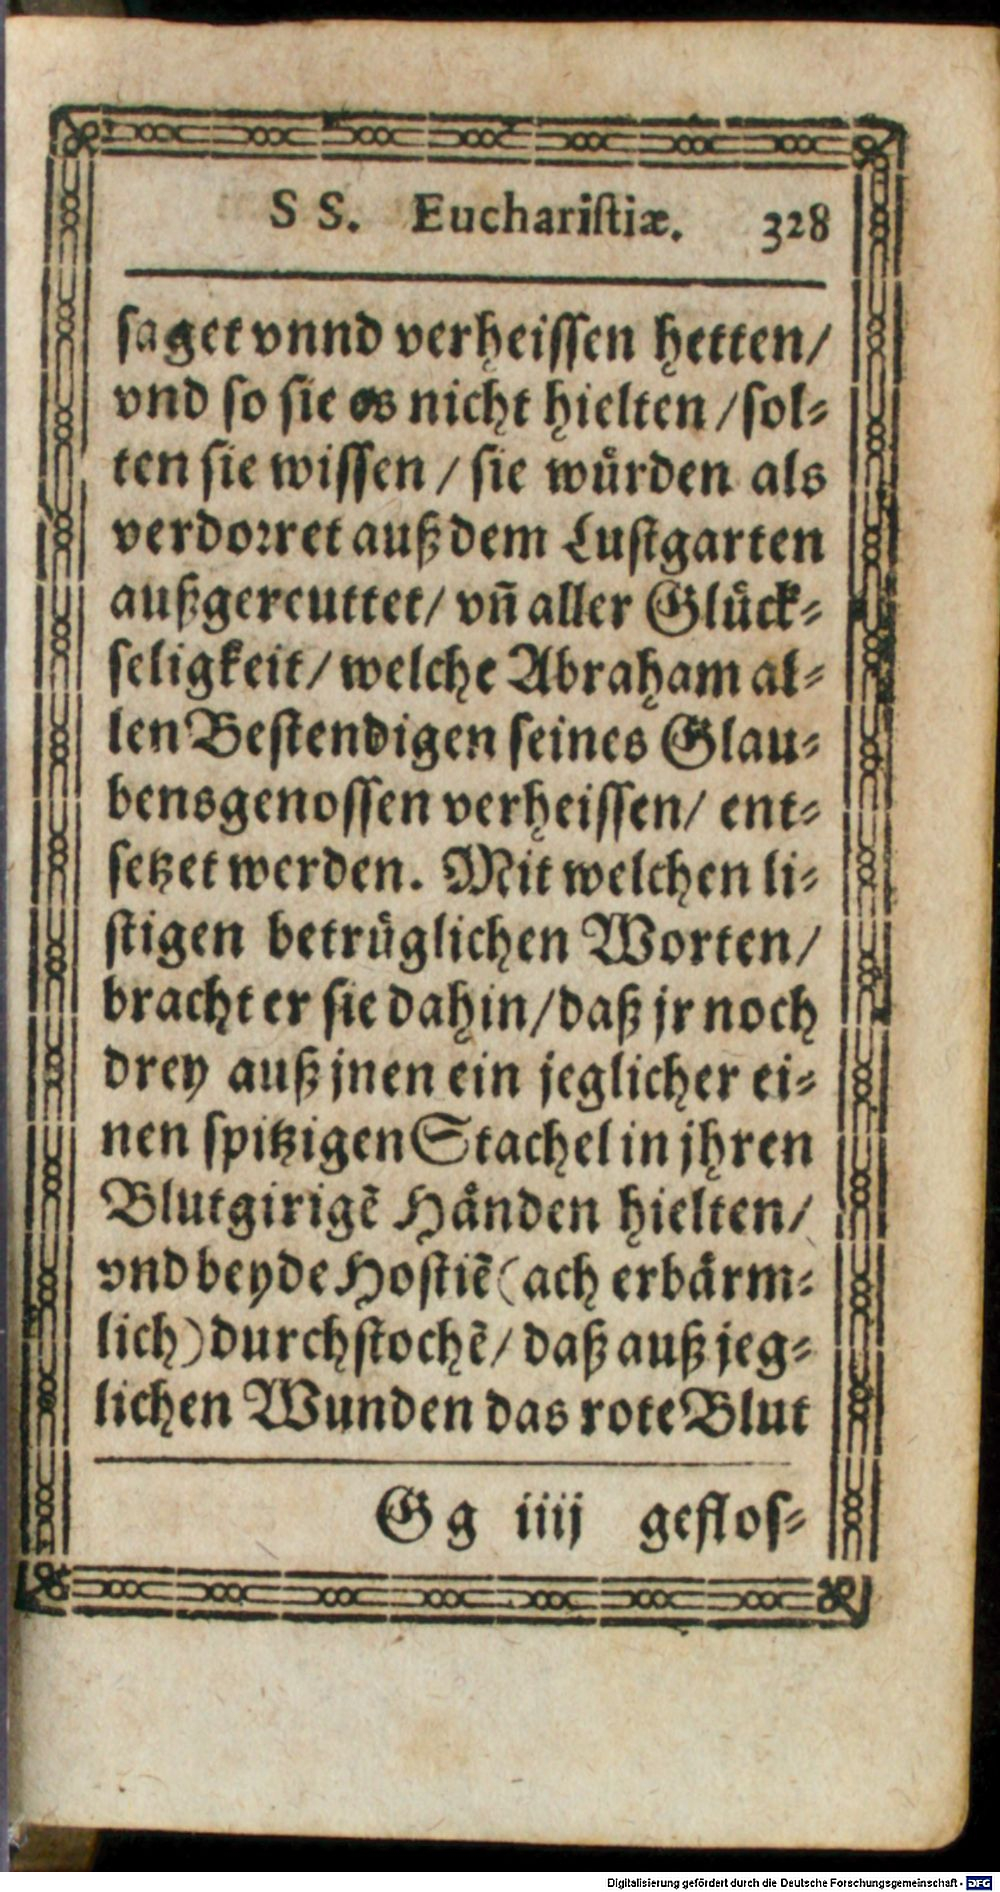 S S. Euchariſtiæ. 328
ſaget vnnd verheiſſen hetten/
vnd ſo ſie es nicht hielten /ſol⸗
ten ſie wiſſen / ſie wuͤrden als
verdoꝛret auß dem Luſtgarten
außgereuttet/ vñ aller Gluͤck⸗
ſeligkeit/ welche Abraham al⸗
len Beſtendigen ſeines Glau⸗
bensgenoſſen verheiſſen/ ent⸗
ſetzet werden. Mit welchen li⸗
ſtigen betruͤglichen Worten/
bracht er ſie dahin/daß jr noch
drey auß jnen ein jeglicher ei⸗
nen ſpitzigen Stachel in jhren
Blutgirigē Haͤnden hielten/
vnd beyde Hoſtiē (ach erbaͤrm⸗
lich) durchſtochē/ daß auß jeg⸗
lichen Wunden das rote Blut
Gg iiij gefloſ⸗
Digitalisierung gefördert durch die Deutsche Forschungsgemeinschaft - DFG